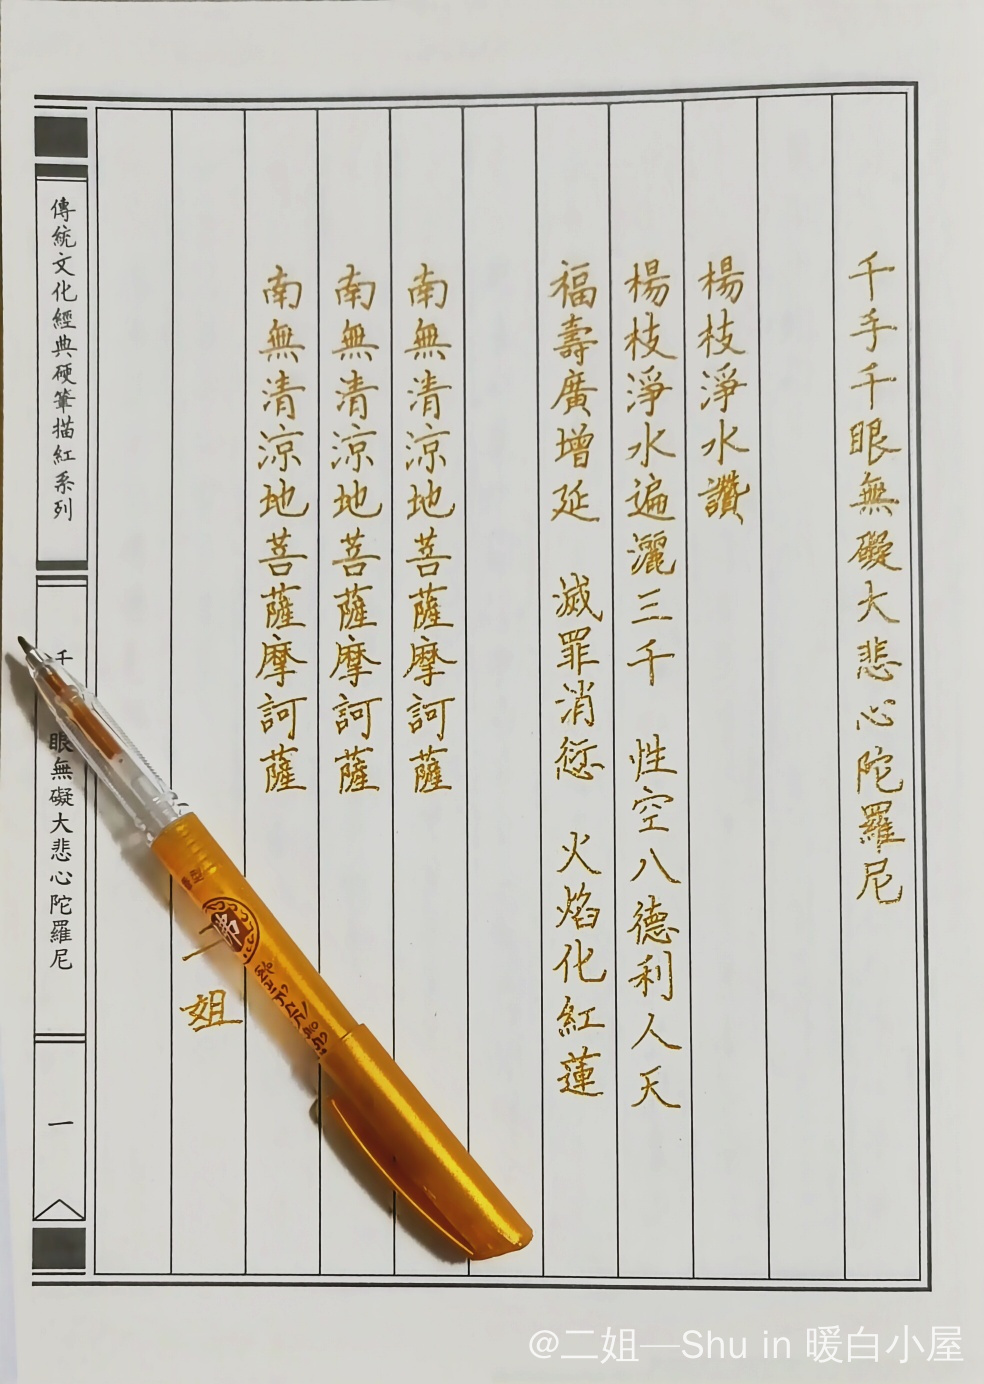 千手千眼無礙大悲心陀羅尼
楊枝淨水讚
楊枝淨水遍灑三千 性空八德利人天
福壽廣增延 滅罪消愆 火焰化紅蓮
南無清涼地菩薩摩訶薩
南無清涼地菩薩摩訶薩
南無清涼地菩薩摩訶薩
二姐
傳統文化經典硬筆描紅系列
千眼無礙大悲心陀羅尼
一
佛
@二姐—Shu in 暖白小屋